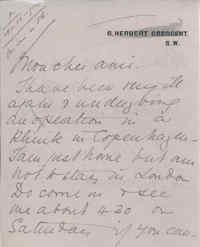 6, HERBERT CRESCENT.
S.W.
Mon cher ami.
I have been very ill
again & undergoing
an operation in a
Klinik in Copenhagen.
I am just home but am
not to stay in London
Do come in & see
me about 4.30 on
Saturday if you can.